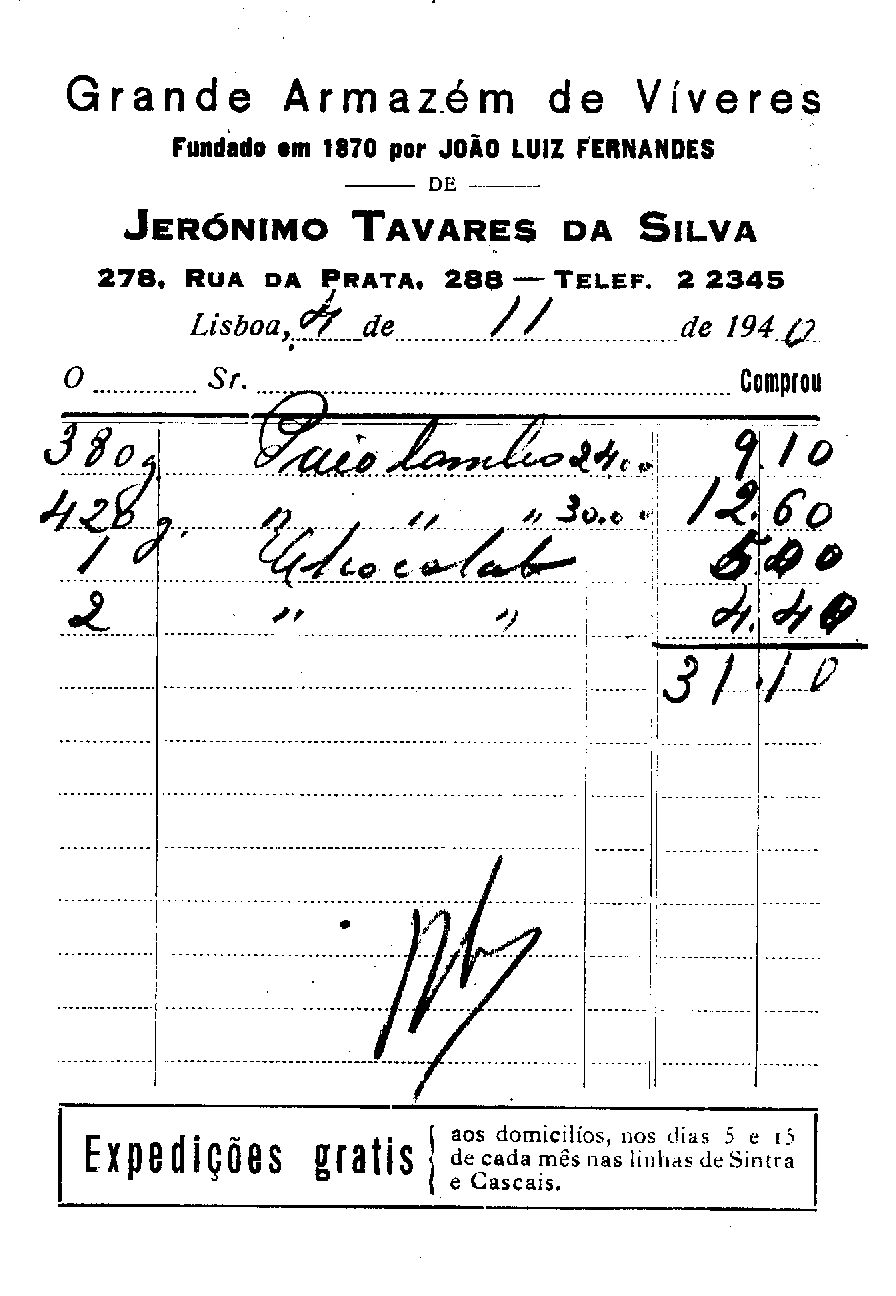 Grande Armazém de Víveres
Fundado em 1870 por JOÃO LUIZ FERNANDES
DE
JERÓNIMO TAVARES DA SILVA
278, RUA DA PRATA, 288 — TELEF. 2 2345
Lisboa, 4 de 11 de 1940
O Sr. Comprou
380g. Paio lombo 24.00 9.10
420g. " " " 30.00 12.60
1 Chocolate 5.00
2 " " 4.40
31.10
Expedições gratis
aos domicilíos, nos dias 5 e 15
de cada mês nas linhas de Sintra
e Cascais.